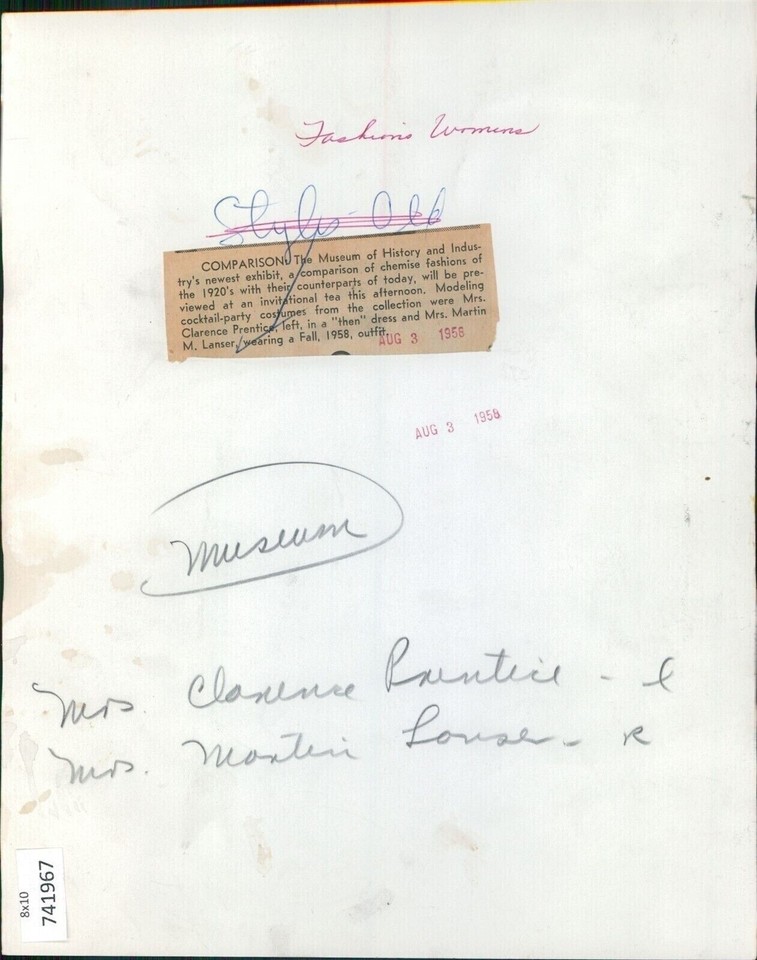 Fashions Womens
Styles - Old
COMPARISON: The Museum of History and Indus-
try's newest exhibit, a comparison of chemise fashions of
the 1920's with their counterparts of today, will be pre-
viewed at an invitational tea this afternoon. Modeling
cocktail-party costumes from the collection were Mrs.
Clarence Prentice, left, in a "then" dress and Mrs. Martin
M. Lanser, wearing a Fall, 1958, outfit.
AUG 3 1958
AUG 3 1958
Museum
Mrs. Clarence Prentice - L
Mrs. Martin Lanser - R
8x10
741967